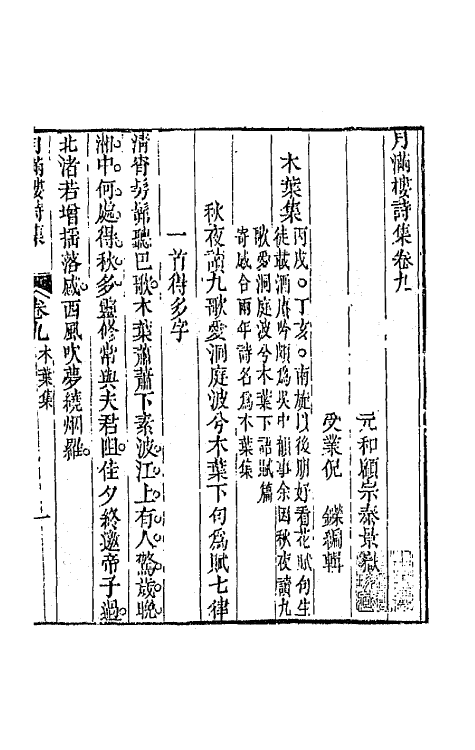 月滿樓詩集卷九
元和顧宗泰景嶽
受業倪 鑅編輯
木葉集
丙戌○丁亥○南旋以後朋好看花賦句生
徒載酒賡吟頗爲吳中韻事余因秋夜讀九
歌愛洞庭波兮木葉下詔賦篇
寄感合兩年詩名爲木葉集
秋夜讀九歌愛洞庭波兮木葉下句爲賦七律
一首得多字
淸宵髣髴聽巴歌木葉蕭蕭下素波江上有人驚歲晚
湘中何處得秋多蹇修常與夫君阻佳夕終邀帝子過
北渚若增搖落感西風吹夢繞烟羅
月滿樓詩集 卷九木葉集 一